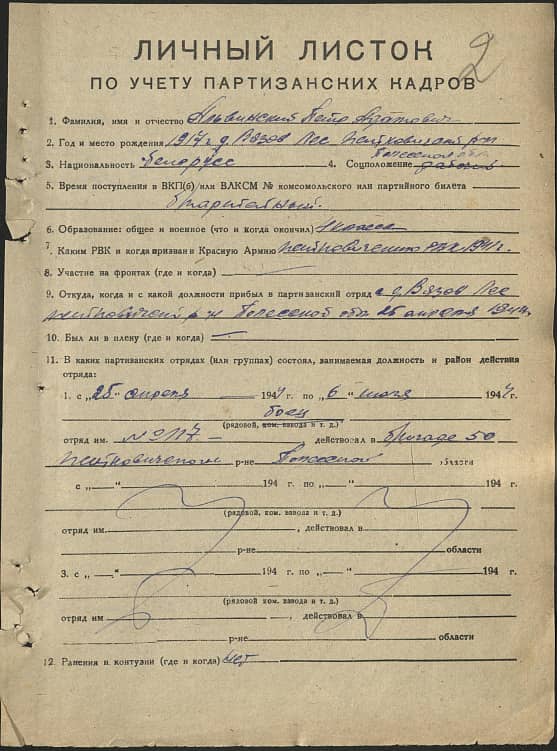 2
ЛИЧНЫЙ ЛИСТОК
ПО УЧЕТУ ПАРТИЗАНСКИХ КАДРОВ
1. Фамилия, имя и отчество
2. Год и место рождения 1917 г д. Вязов Лес
3. Национальность белорусс 4. Соцположение рабочий
5. Время поступления в ВКП(б) или ВЛКСМ № комсомольского или партийного билета
6. Образование: общее и военное (что и когда окончил) класса
7. Каким РВК и когда призван в Красную Армию РВК 1941 г.
8. Участие на фронтах (где и когда) —
9. Откуда, когда и с какой должности прибыл в партизанский отряд с д. Вязов Лес
25 апреля 1944
10. Был ли в плену (где и когда) —
11. В каких партизанских отрядах (или группах) состоял, занимаемая должность и район действия
отряда:
1. с „25" апреля 1944 г. по „6" июля 1944 г.
боец
(рядовой, ком. взвода и т. д.)
отряд им. № 117 — действовал в бригаде 50
р-не области
с „—" 194 г. по „—" 194 г.
(рядовой, ком. взвода и т. д.)
отряд им. , действовал в
р-не области
3. с „—" 194 г. по „—" 194 г.
(рядовой, ком. взвода и т. д.)
отряд им , действовал в
р-не области
12. Ранения и контузии (где и когда) нет